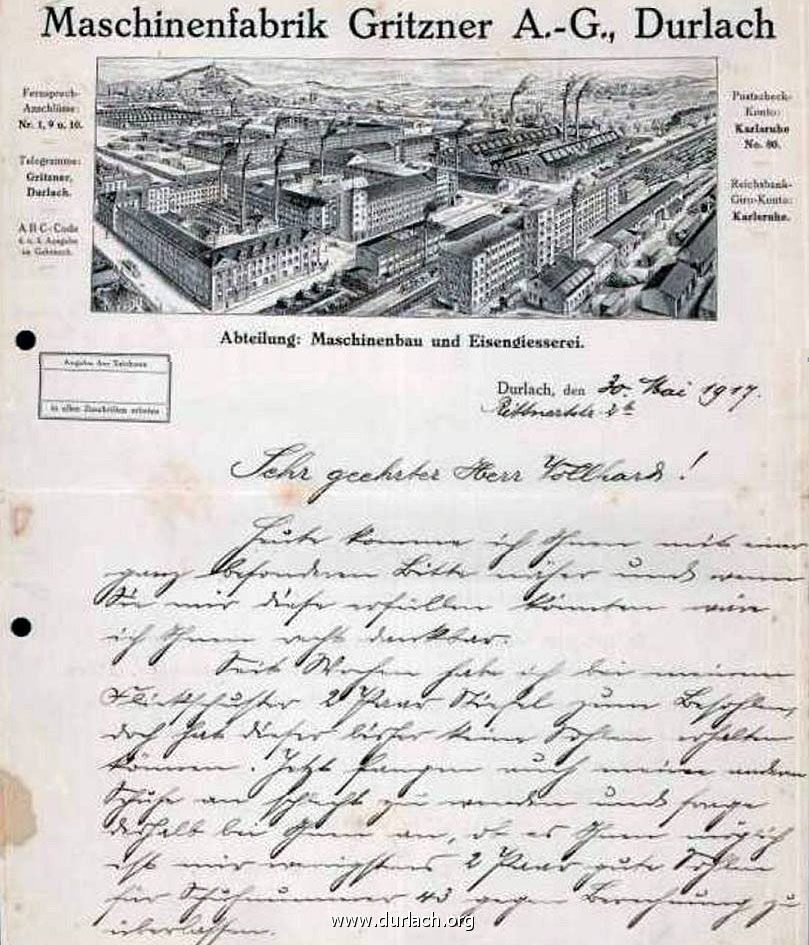 Maschinenfabrik Gritzner A.-G., Durlach
Fernsprech-
Anschlüsse:
Nr. 1, 9 u. 10.
Telegramme:
Gritzner,
Durlach.
A B C-Code
4. u. 5. Ausgabe
im Gebrauch.
Postscheck-
Konto:
Karlsruhe
No. 80.
Reichsbank-
Giro-Konto:
Karlsruhe.
Abteilung: Maschinenbau und Eisengiesserei.
Angabe der Zeichens
in allen Zuschriften erbeten
Durlach, den 30. Mai 1917.
Rittnertstr
Sehr geehrter Herr Vollhard!
Heute komme ich Ihnen mit einer
ganz besonderen Bitte näher und wenn
Sie mir diese erfüllen könnten wäre
ich Ihnen recht dankbar.
Seit Wochen habe ich bei meinem
Flickschuster 2 Paar Stiefel zum Besohlen,
doch hat dieser bisher keine Sohlen erhalten
können. Jetzt fangen auch meine andern
Schuhe an schlecht zu werden und frage
deshalb bei Ihnen an, ob es Ihnen möglich
ist mir wenigstens 2 Paar gute Sohlen
für Schuhnummer 43 gegen Berechnung zu
überlassen.
www.durlach.org